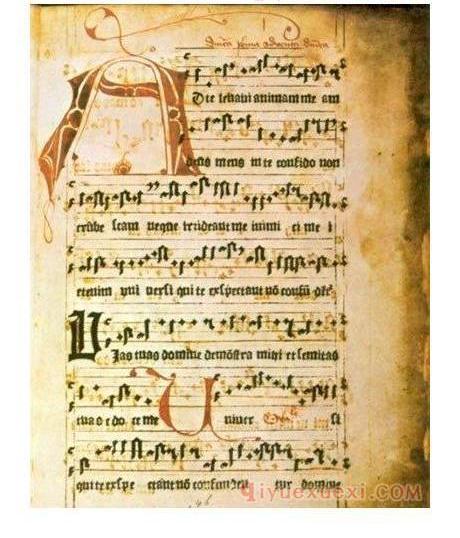 A
D te levavi animam me am
deus meus in te confido non
erube scam neque irrideant me inimi ci me i
etenim uni versi qui te exspectant nō confūd
Vias tuas domine demōstra michi et semitas
tuas e do ce me Univer si
qui te exspe ctant nō confunden tur domine
qiyuexuexi.COM